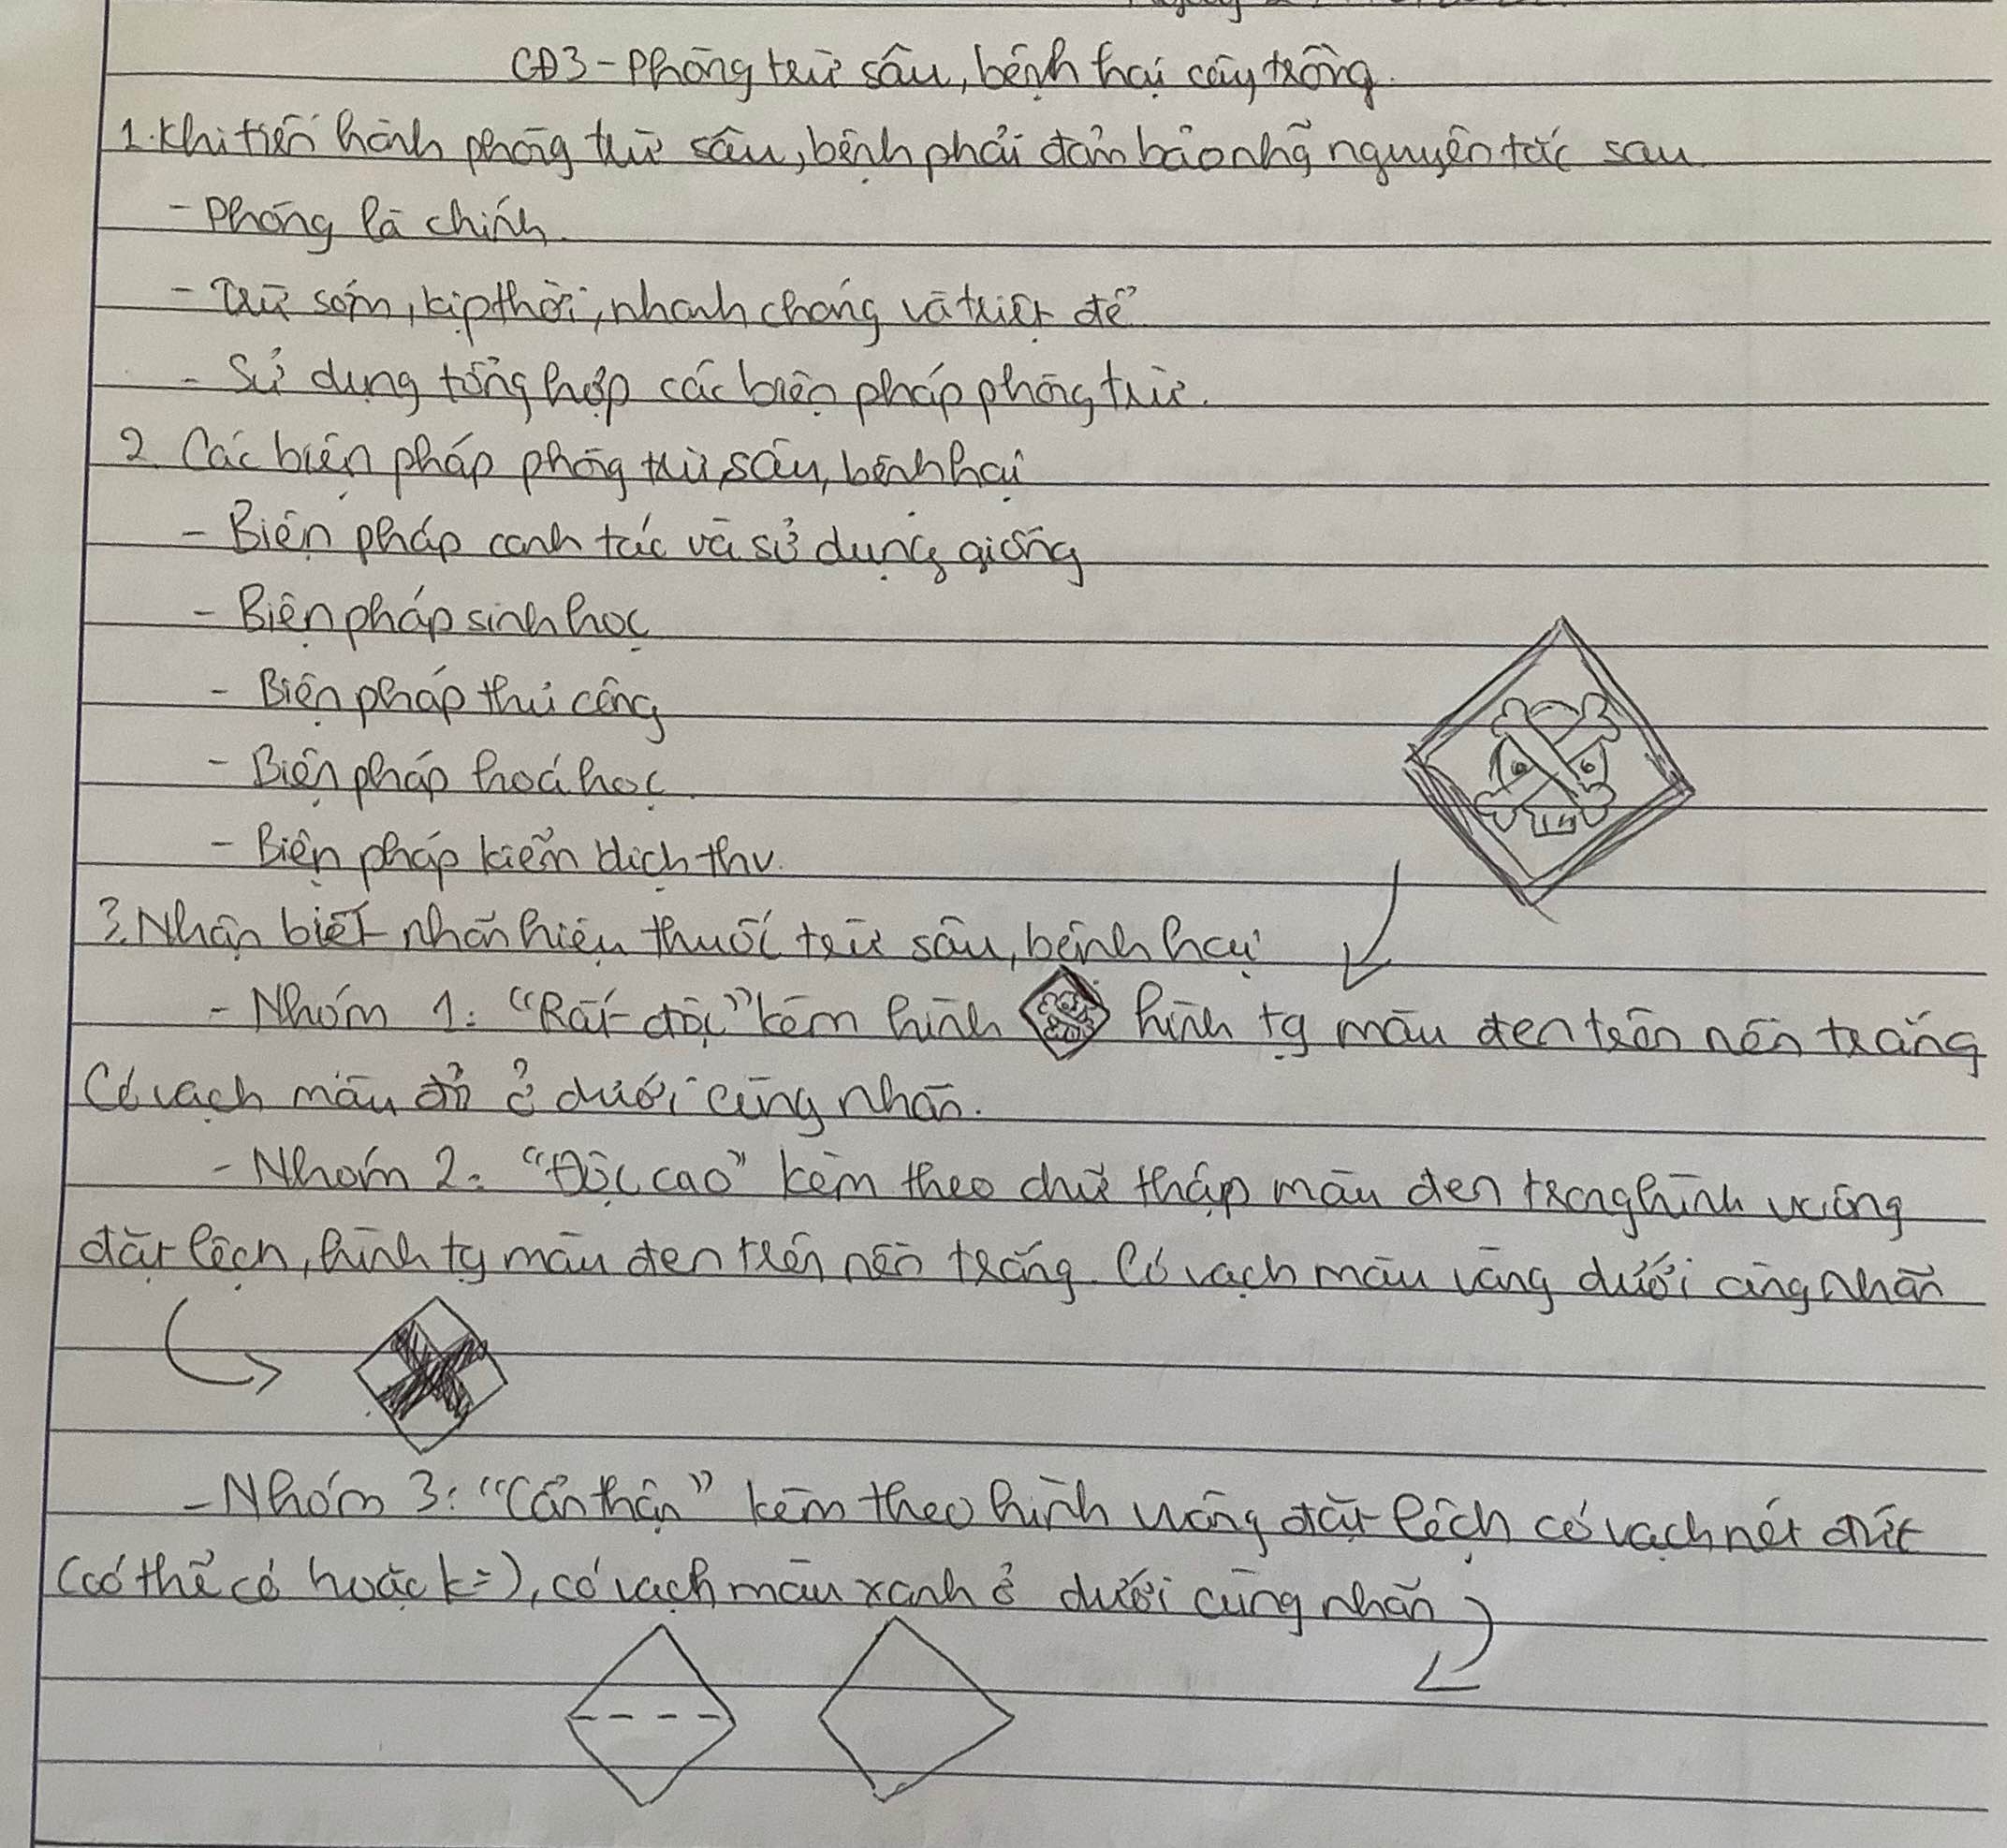 CĐ3 - Phòng trừ sâu, bệnh hại cây trồng.
1. Khi tiến hành phòng trừ sâu, bệnh phải đảm bảo nhg~ nguyên tắc sau
- Phòng là chính.
- Trừ sớm, kịp thời, nhanh chóng và triệt để
- Sử dụng tổng hợp các biện pháp phòng trừ.
2. Các biện pháp phòng trừ sâu, bệnh hại
- Biện pháp canh tác và sử dụng giống
- Biện pháp sinh học
- Biện pháp thủ công
- Biện pháp hoá học.
- Biện pháp kiểm dịch thv.
3. Nhận biết nhãn hiệu thuốc trừ sâu, bệnh hại
- Nhóm 1: "Rất độc" kèm hình hình tg màu đen trên nền trắng
Có vạch màu đỏ ở dưới cùng nhãn.
- Nhóm 2: "Độc cao" kèm theo chữ thập màu đen trong hình vuông
đặt lệch, hình tg màu đen trên nền trắng. Có vạch màu vàng dưới cùng nhãn
- Nhóm 3: "Cẩn thận" kèm theo hình vuông đặt lệch có vạch nét đứt
(có thể có hoặc k=), có vạch màu xanh ở dưới cùng nhãn